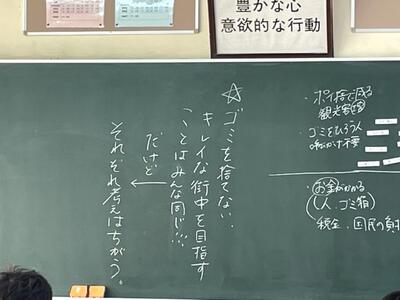 豊かな心
意欲的な行動
☆ゴミを捨てない、
キレイな街中を目指す
ことはみんな同じ!!!
だけど
それぞれ考えはちがう。
・ポイ捨て減る
・ゴミをひろう人
呼びかけ不要
・お金がかかる
(人、ゴミ箱)
税金、国民の負担